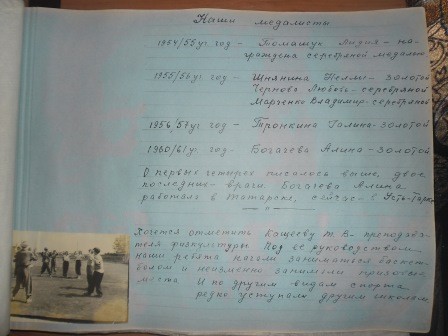 Наши медалисты
1954/55 уч год - Томащук Лидия - на-
граждена серебряной медалью
1955/56 уч год - Шнянина Нелли - золотой
Чернова Любовь - серебряной
Марченко Владимир - серебряной
1956/57 уч год - Тронкина Галина - золотой
1960/61 уч год - Богачева Алина - золотой
О первые четверо писалось выше, двое
последние - врачи. Богачева Алина
работала в Татарске, сейчас - в Усть-Тарке
— " —
Хочется отметить Кащееву Ж. В - преподава-
теля физкультуры. Под ее руководством
наши ребята начали заниматься баскет-
болом и неизменно занимали призовые
места И по другим видам спорта
редко уступали другим школам.